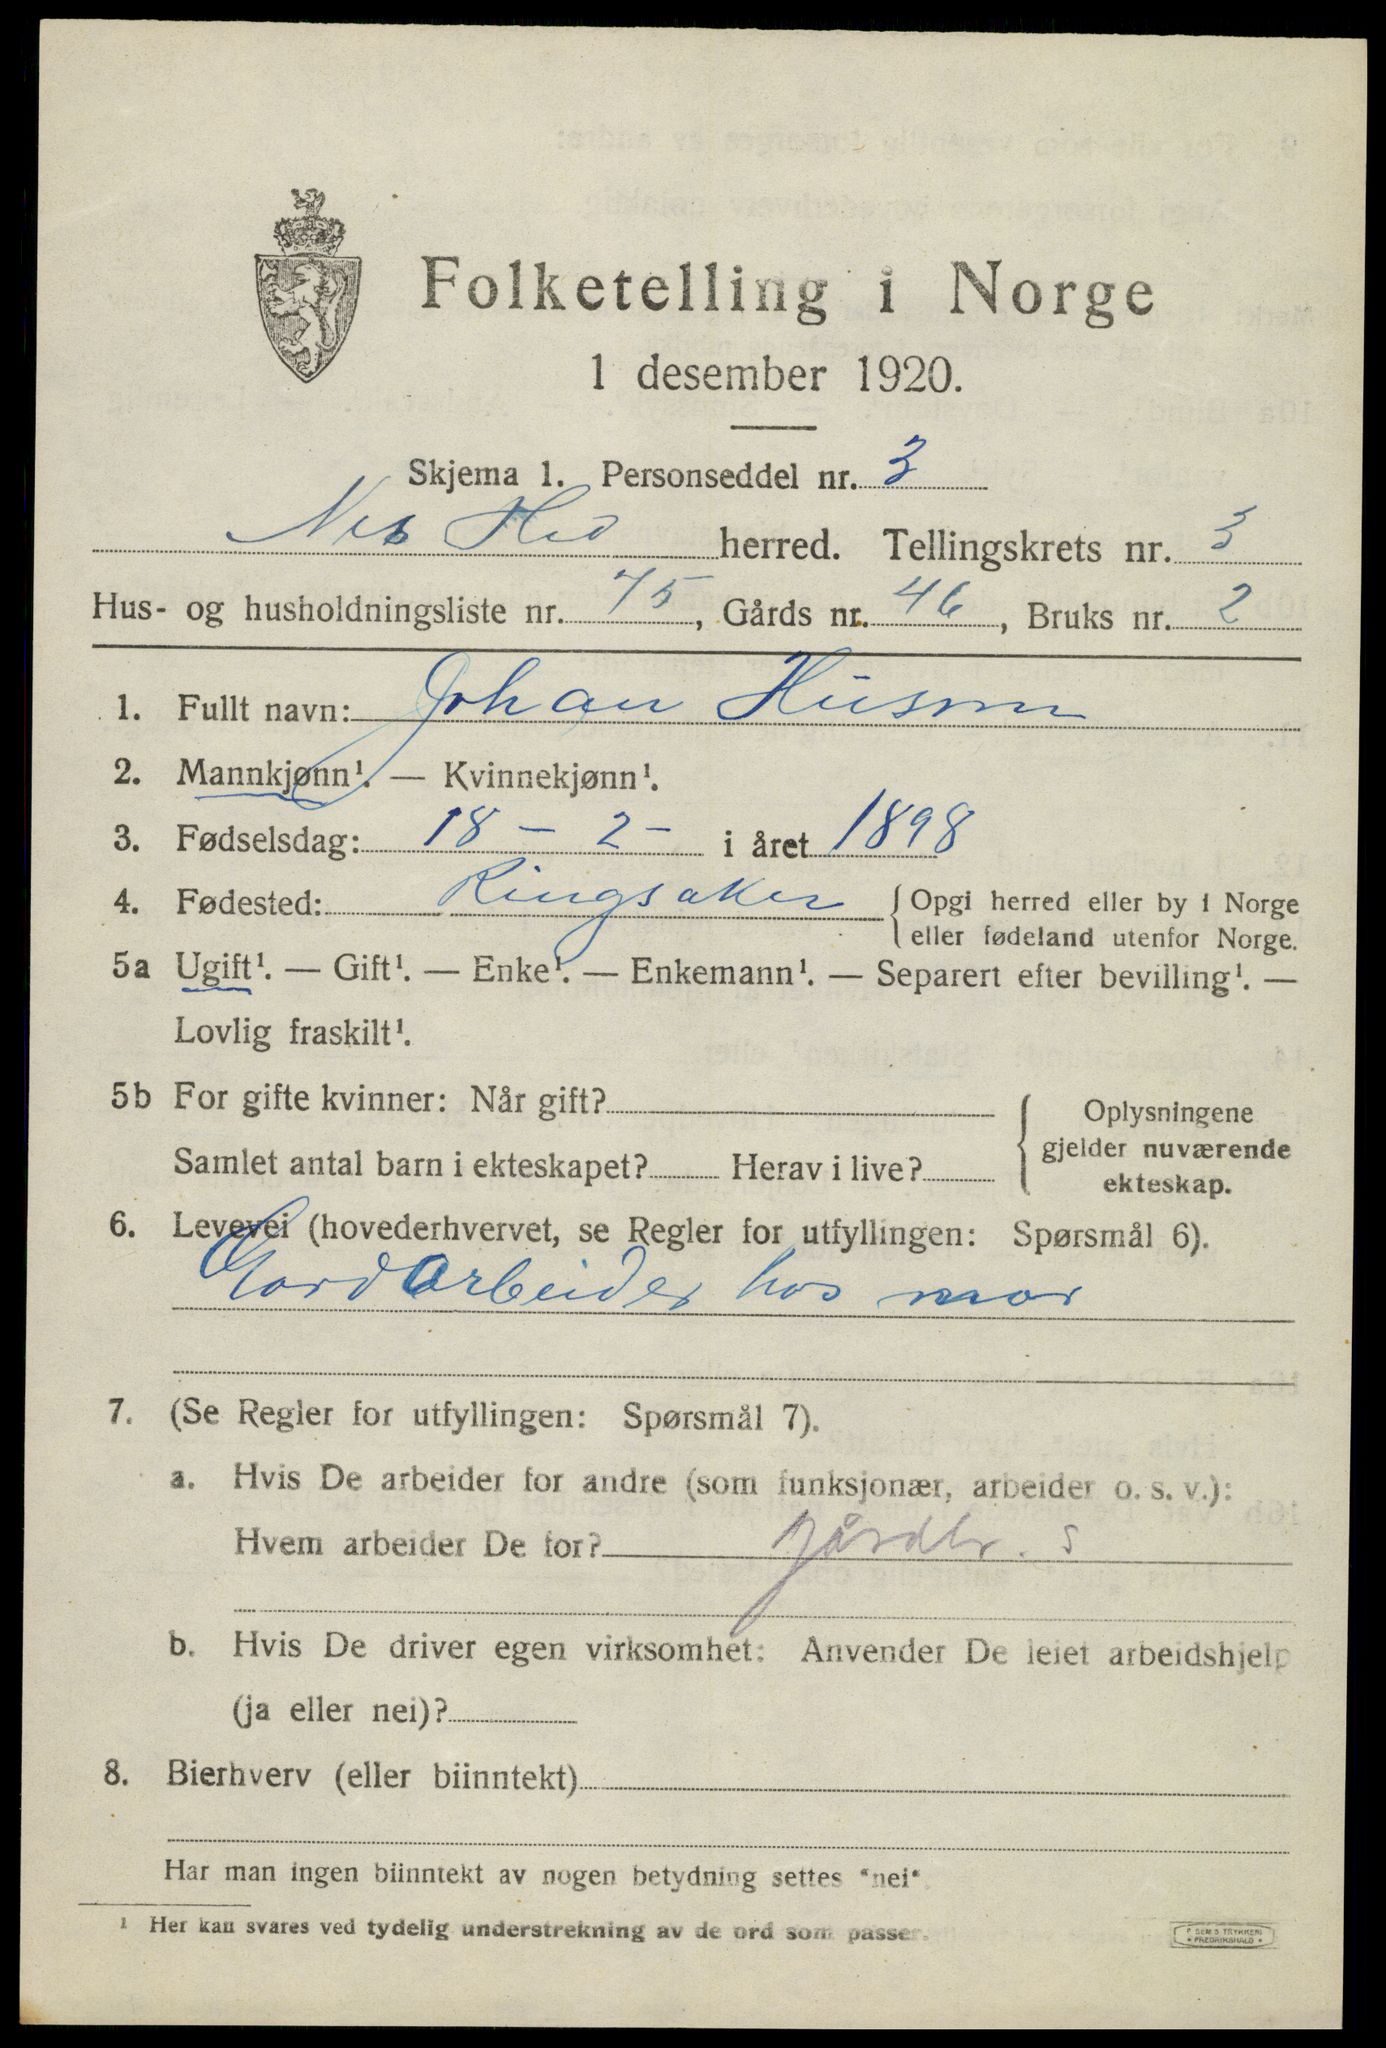 Folketelling i Norge
1 desember 1920.
Skjema 1. Personseddel nr. 3
Nes Hed herred. Tellingskrets nr. 3
Hus- og husholdningsliste nr. 75, Gårds nr. 46, Bruks nr. 2
1. Fullt navn: Johan Husom
2. Mannkjønn¹. — Kvinnekjønn¹.
3. Fødselsdag: 18 - 2 - i året 1898
4. Fødested: Ringsaker { Opgi herred eller by i Norge
eller fødeland utenfor Norge.
5a Ugift¹. — Gift¹. — Enke¹. — Enkemann¹. — Separert efter bevilling¹. —
Lovlig fraskilt¹.
5b For gifte kvinner: Når gift?
Samlet antal barn i ekteskapet? Herav i live?
{ Oplysningene
gjelder nuværende
ekteskap.
6. Levevei (hovederhvervet, se Regler for utfyllingen: Spørsmål 6).
Gardarbeider hos mor
7. (Se Regler for utfyllingen: Spørsmål 7).
a. Hvis De arbeider for andre (som funksjonær, arbeider o. s. v.):
Hvem arbeider De for? gårdbr. s
b. Hvis De driver egen virksomhet: Anvender De leiet arbeidshjelp
(ja eller nei)?
8. Bierhverv (eller biinntekt)
Har man ingen biinntekt av nogen betydning settes "nei".
¹ Her kan svares ved tydelig understrekning av de ord som passer.
P. SEM'S TRYKKERI
• FREDRIKSHALD •